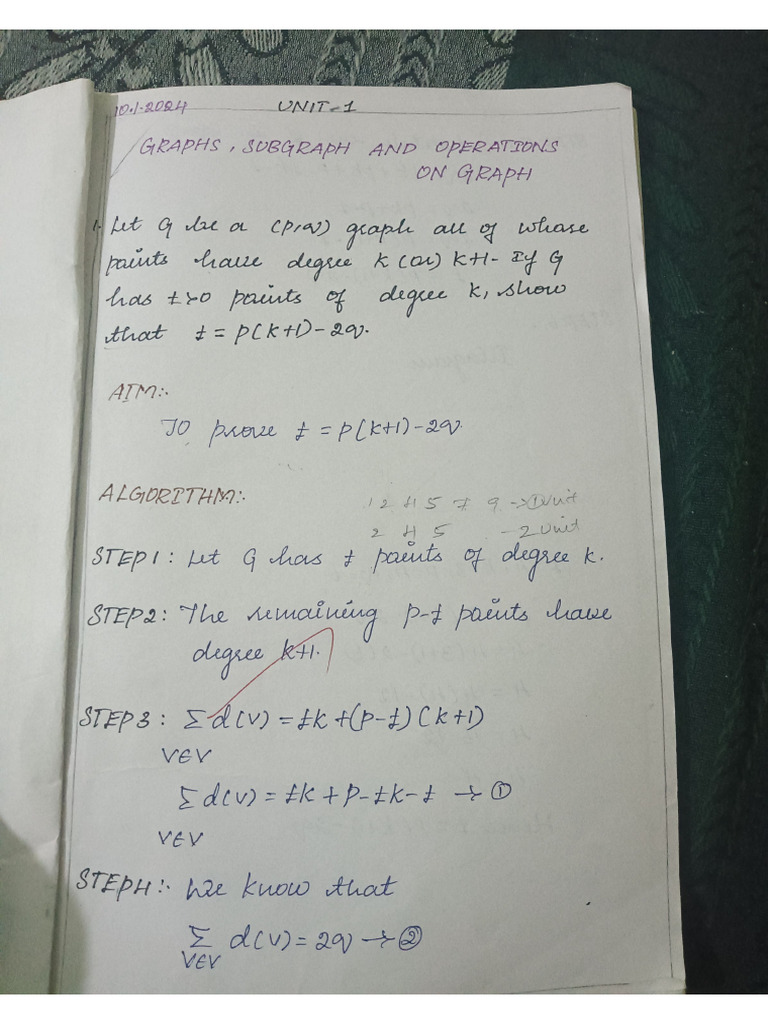 10.1.2024
UNIT-1
GRAPHS, SUBGRAPH AND OPERATIONS
ON GRAPH
1. Let G be a (p,q) graph all of whose
points have degree k (or) k+1. If G
has t>0 points of degree k, show
that t = p(k+1)-2q.
AIM:-
To prove t = p(k+1)-2q.
ALGORITHM:-
1 2 4 5 7 9 → ① Unit
2 4 5 - 2 Unit
STEP 1 : Let G has t points of degree k.
STEP 2 : The remaining p-t points have
degree k+1.
STEP 3 : Σ d(v) = tk + (p-t) (k+1)
v∈V
Σ d(v) = tk + p - tk - t → ①
v∈V
STEP 4 :- We know that
Σ d(v) = 2q → ②
v∈V